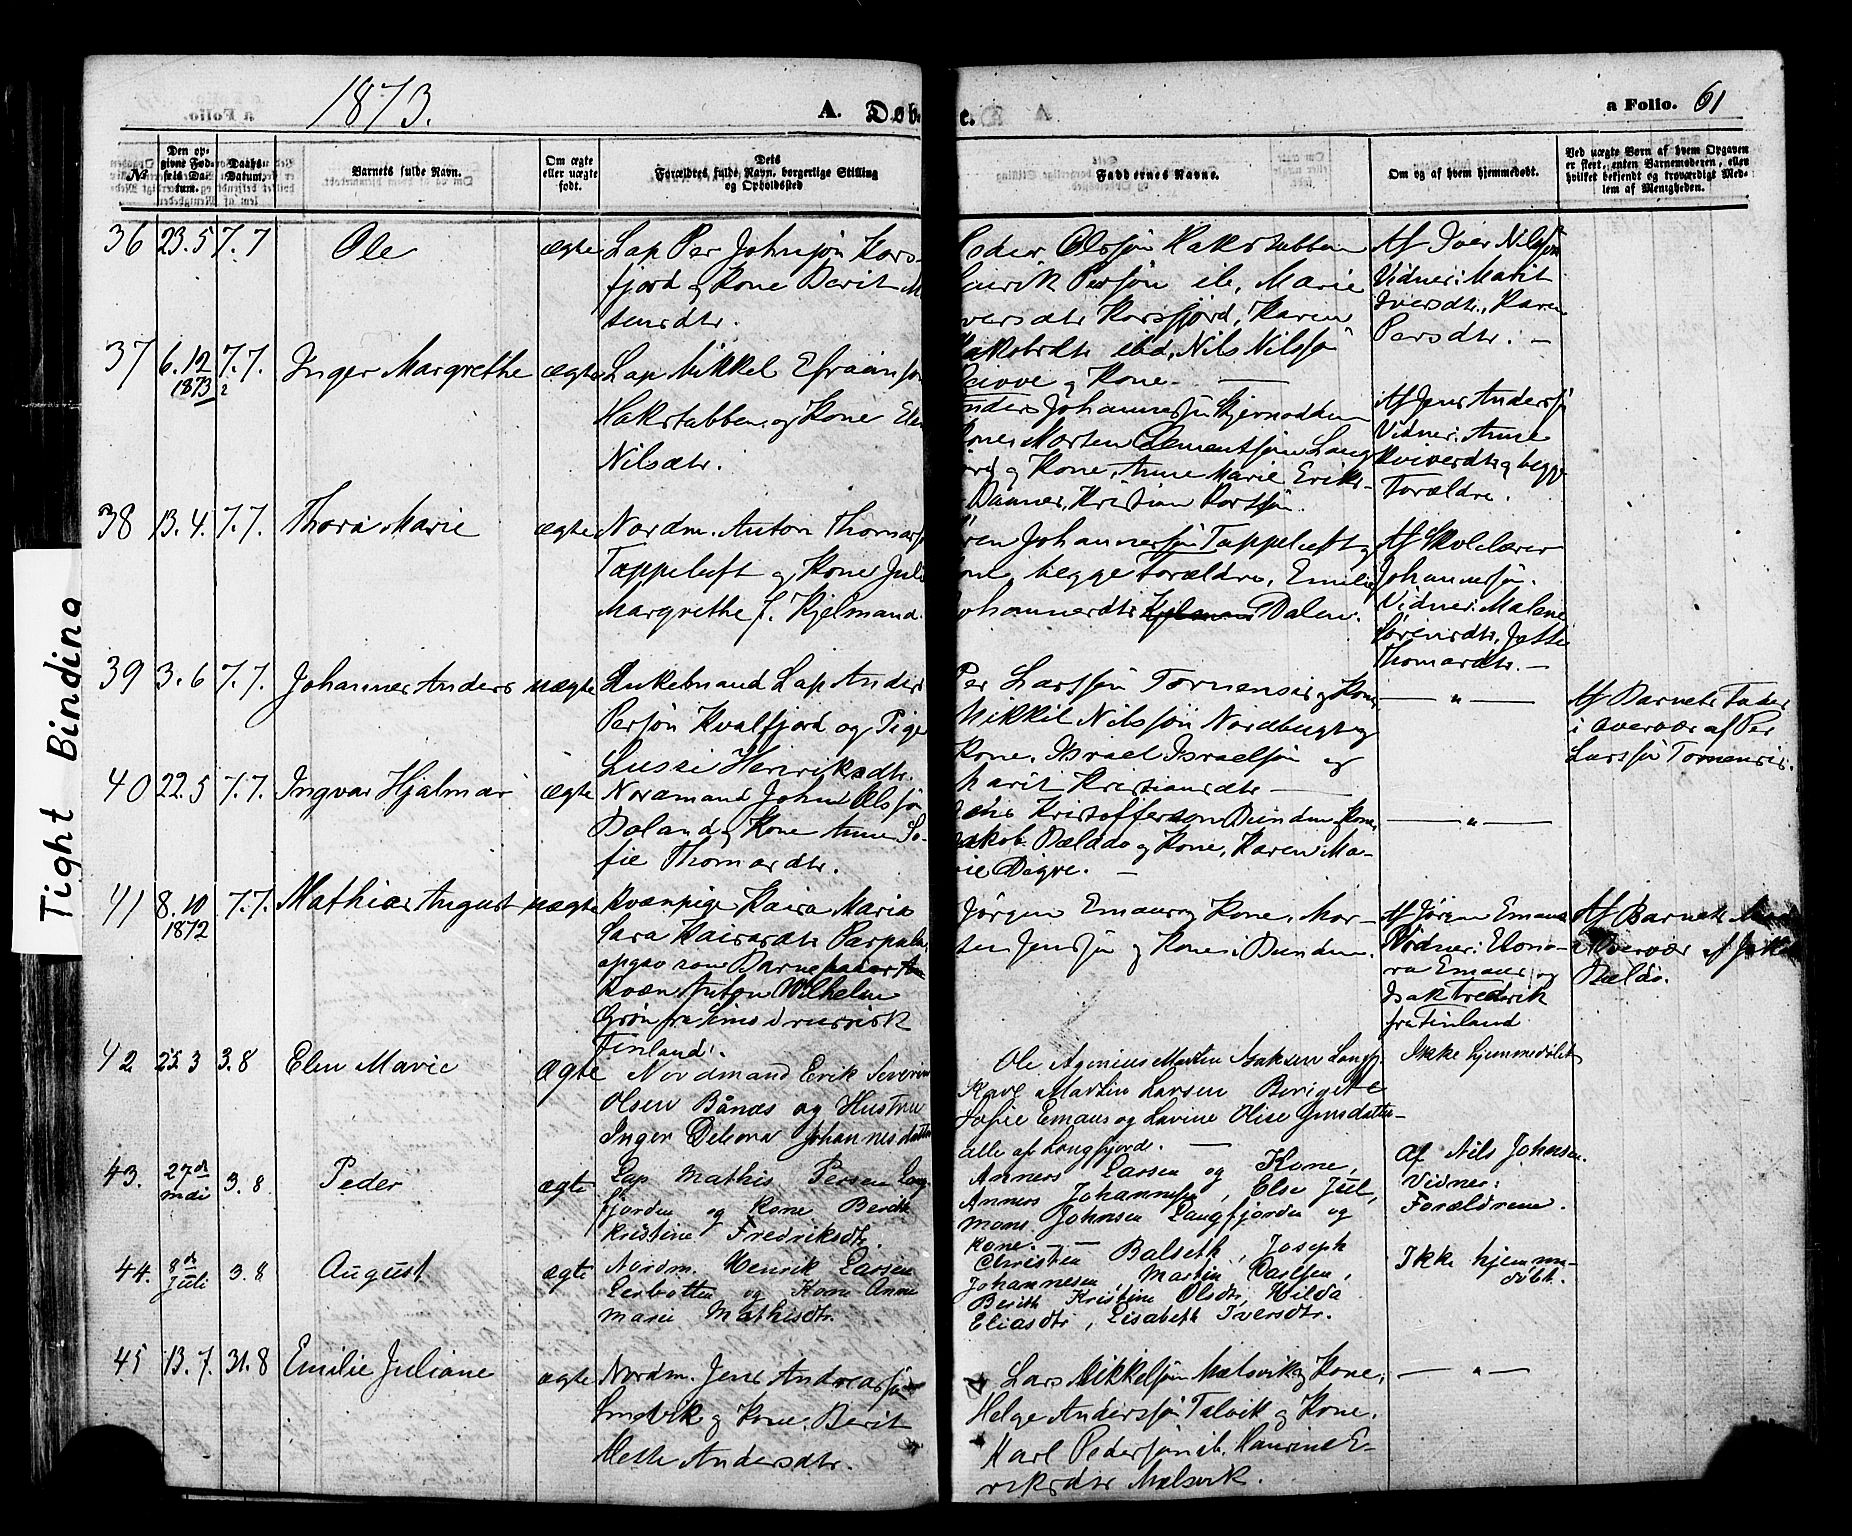 1873.
A. Døb
e.
a Folio. 61
№
Den op-
givne Fød-
sels Da-
tum.
Daabs-
Datum.
Barnets fulde Navn.
Om ægte
eller uægte
født.
Dets
Forældres fulde Navn, borgerlige Stilling
og Opholdsted
Faddernes Navne.
Om og af hvem hjemmedøbt.
Ved uægte Børn af hvem Opgaven
er skeet, enten Barnemoderen, eller
hvilket bekjendt og troværdigt Med-
lem af Menigheden.
36 23.5 7.7 Ole ægte
Lap Per Johnsøn Kors-
fjord og Kone Berit M
tensdtr.
Peder Olssøn Hakstabben
Persøn ib, Marie
versdtr Korsfjord, Karen
Jakobsdtr ibid, Nils Nilssøn
og Kone. —
Af Iver Nilssøn
Vidner: Marit
Iversdtr., Karen
Persdtr. —
37 6.12 1873 7.7. Inger Margrethe ægte
Lap Mikkel Efraimsøn
Hakstabben og Kone Elen
Nilsdtr.
Anders Johannessøn
Kone, Morten Clementsøn Lang
fjord og Kone, Anne Marie Eriks-
Kristian
Af Jens Anderssøn
Vidner: Anne
og begge
Forældre.
38 13.4. 7.7. Thora Marie ægte
Nordm. Anton Thomassøn
Tappeluft og Kone Juli
Margrethe f. Kjelmand.
Søren Johannessøn Tappeluft og
Kone, begge Forældre, Emilie
Johannesdtr Dalen.
Af Skolelærer
Johannessøn.
Vidner: Malene
Sørensdtr, Jette
Thomasdtr. —
39 3.6 7.7. Johannes Anders uægte
Enkemand Lap Anders
Persøn Kvalfjord og Pige
Lussi Henriksdtr.
Per Larssøn Tornensis og Kone
Mikkil Nilssøn Nordbugt og
Kone, Israel Israelsøn og
Marit Kristiansdtr —
— " —
Af Barnets Fader
i Overvær af Per
Larssøn Tornensis.
40 22.5 7.7. Ingvar Hjalmar ægte
Nordmand John Olssøn
og Kone Anne So-
fie Thomasdtr.
Kristofferson og Kone,
Jakob Bælddo og Kone, Karen Ma-
rie Digre. —
— " —
41 8.10 1872 7.7. Mathias August uægte
Kvænpige Kaisa Maria
Sara Kaisasdtr
opgav som Barnefader
Kvæn Anton Wilhelm
Grön fra i russisk
Finland.
Jørgen Emaus og Kone, Mor-
ten Jenssøn og Kone i
Af Jørgen Emaus
Vidner: Elono-
ra Emaus og
Isak Fredrik
fra Finland
Af Barnets
Overvær af
Bældo.
42 25.3 3.8 Elen Marie ægte
Nordmand Erik Severin
Olsen Bånæs og Hustru
Inger Johannesdatter
Ole Martin Isaksen Langfj.
Karl Martin Larsen
Sofie Emaus og Lavine Olise Jensdatter—
alle af Langfjord. —
Ikke hjemmedøbt
43. 27de mai 3.8 Peder ægte
Lap Mathis Persen Lang-
fjorden og Kone Berith
Kristine Fredriksdtr.
Anners Larsen og Kone,
Anners Johannesen, Else Jul,
Mons Johnsen Langfjorden og
Kone. —
Af Nils Johnsen.
Vidner:
Forældrene.
44. 8de Juli 3.8 August ægte
Nordm. Henrik Larsen
Leirbotten og Kone Anne
Marie Mathisdtr.
Christen Balseth, Joseph
Johannesen, Martin Carlsen,
Berith Kristine Olsdtr, Hilda
Eliasdtr, Lisabeth Iversdtr.
Ikke hjemme-
døbt.
45 13.7. 31.8 Emilie Juliane ægte
Nordm. Jens Andreassøn
og Kone Berit
Mette Andersdtr.
Lars Mikkelsøn Melsvik og Kone,
Helge Anderssøn Talvik og Kone.
Karl Pedersøn ib. Laurine E-
riksdtr Melsvik.
— " —
Tight Binding